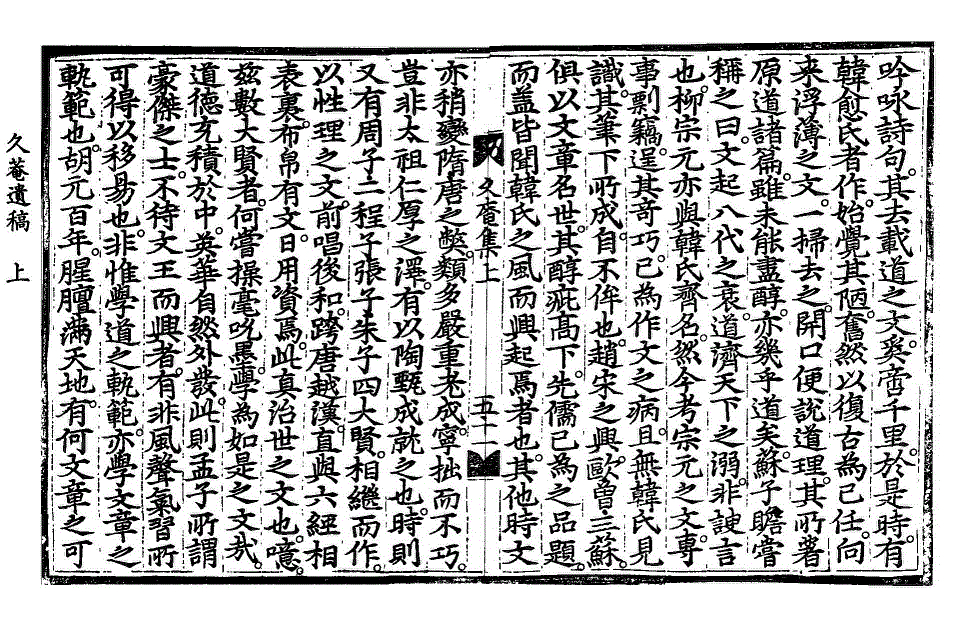 吟咏詩句。其去載道之文。奚啻千里。於是時有
韓愈氏者作。始覺其陋。奮然以復古爲己任。向
来浮薄之文。一掃去之。開口便說道理。其所著
原道諸篇。雖未能盡醇。亦幾乎道矣。蘇子瞻嘗
稱之曰。文起八代之衰。道濟天下之溺。非諛言
也。柳宗元亦與韓氏齊名。然今考宗元之文。專
事剽竊。逞其奇巧。已為作文之病。且無韓氏見
識。其筆下所成。自不侔也。趙宋之興。歐曾三蘇。
俱以文章名世。其醇疵高下。先儒已為之品題。
而盖皆聞韓氏之風而興起焉者也。其他時文
久菴集上
五十一
亦稍變隋唐之獘。類多嚴重老成。寧拙而不巧。
豈非太祖仁厚之澤。有以陶甄成就之也。時則
又有周子二程子張子朱子四大賢。相繼而作。
以性理之文。前唱後和。跨唐越漢。直與六經相
表裏。布帛有文。日用資焉。此真治世之文也。噫。
玆數大賢者。何嘗操毫吮墨。學為如是之文哉。
道德充積於中。英華自然外發。此則孟子所謂
豪傑之士。不待文王而興者。有非風聲氣習所
可得以移易也。非惟學道之軌範。亦學文章之
軌範也。胡元百年。腥膻滿天地。有何文章之可
久菴遺稿 上